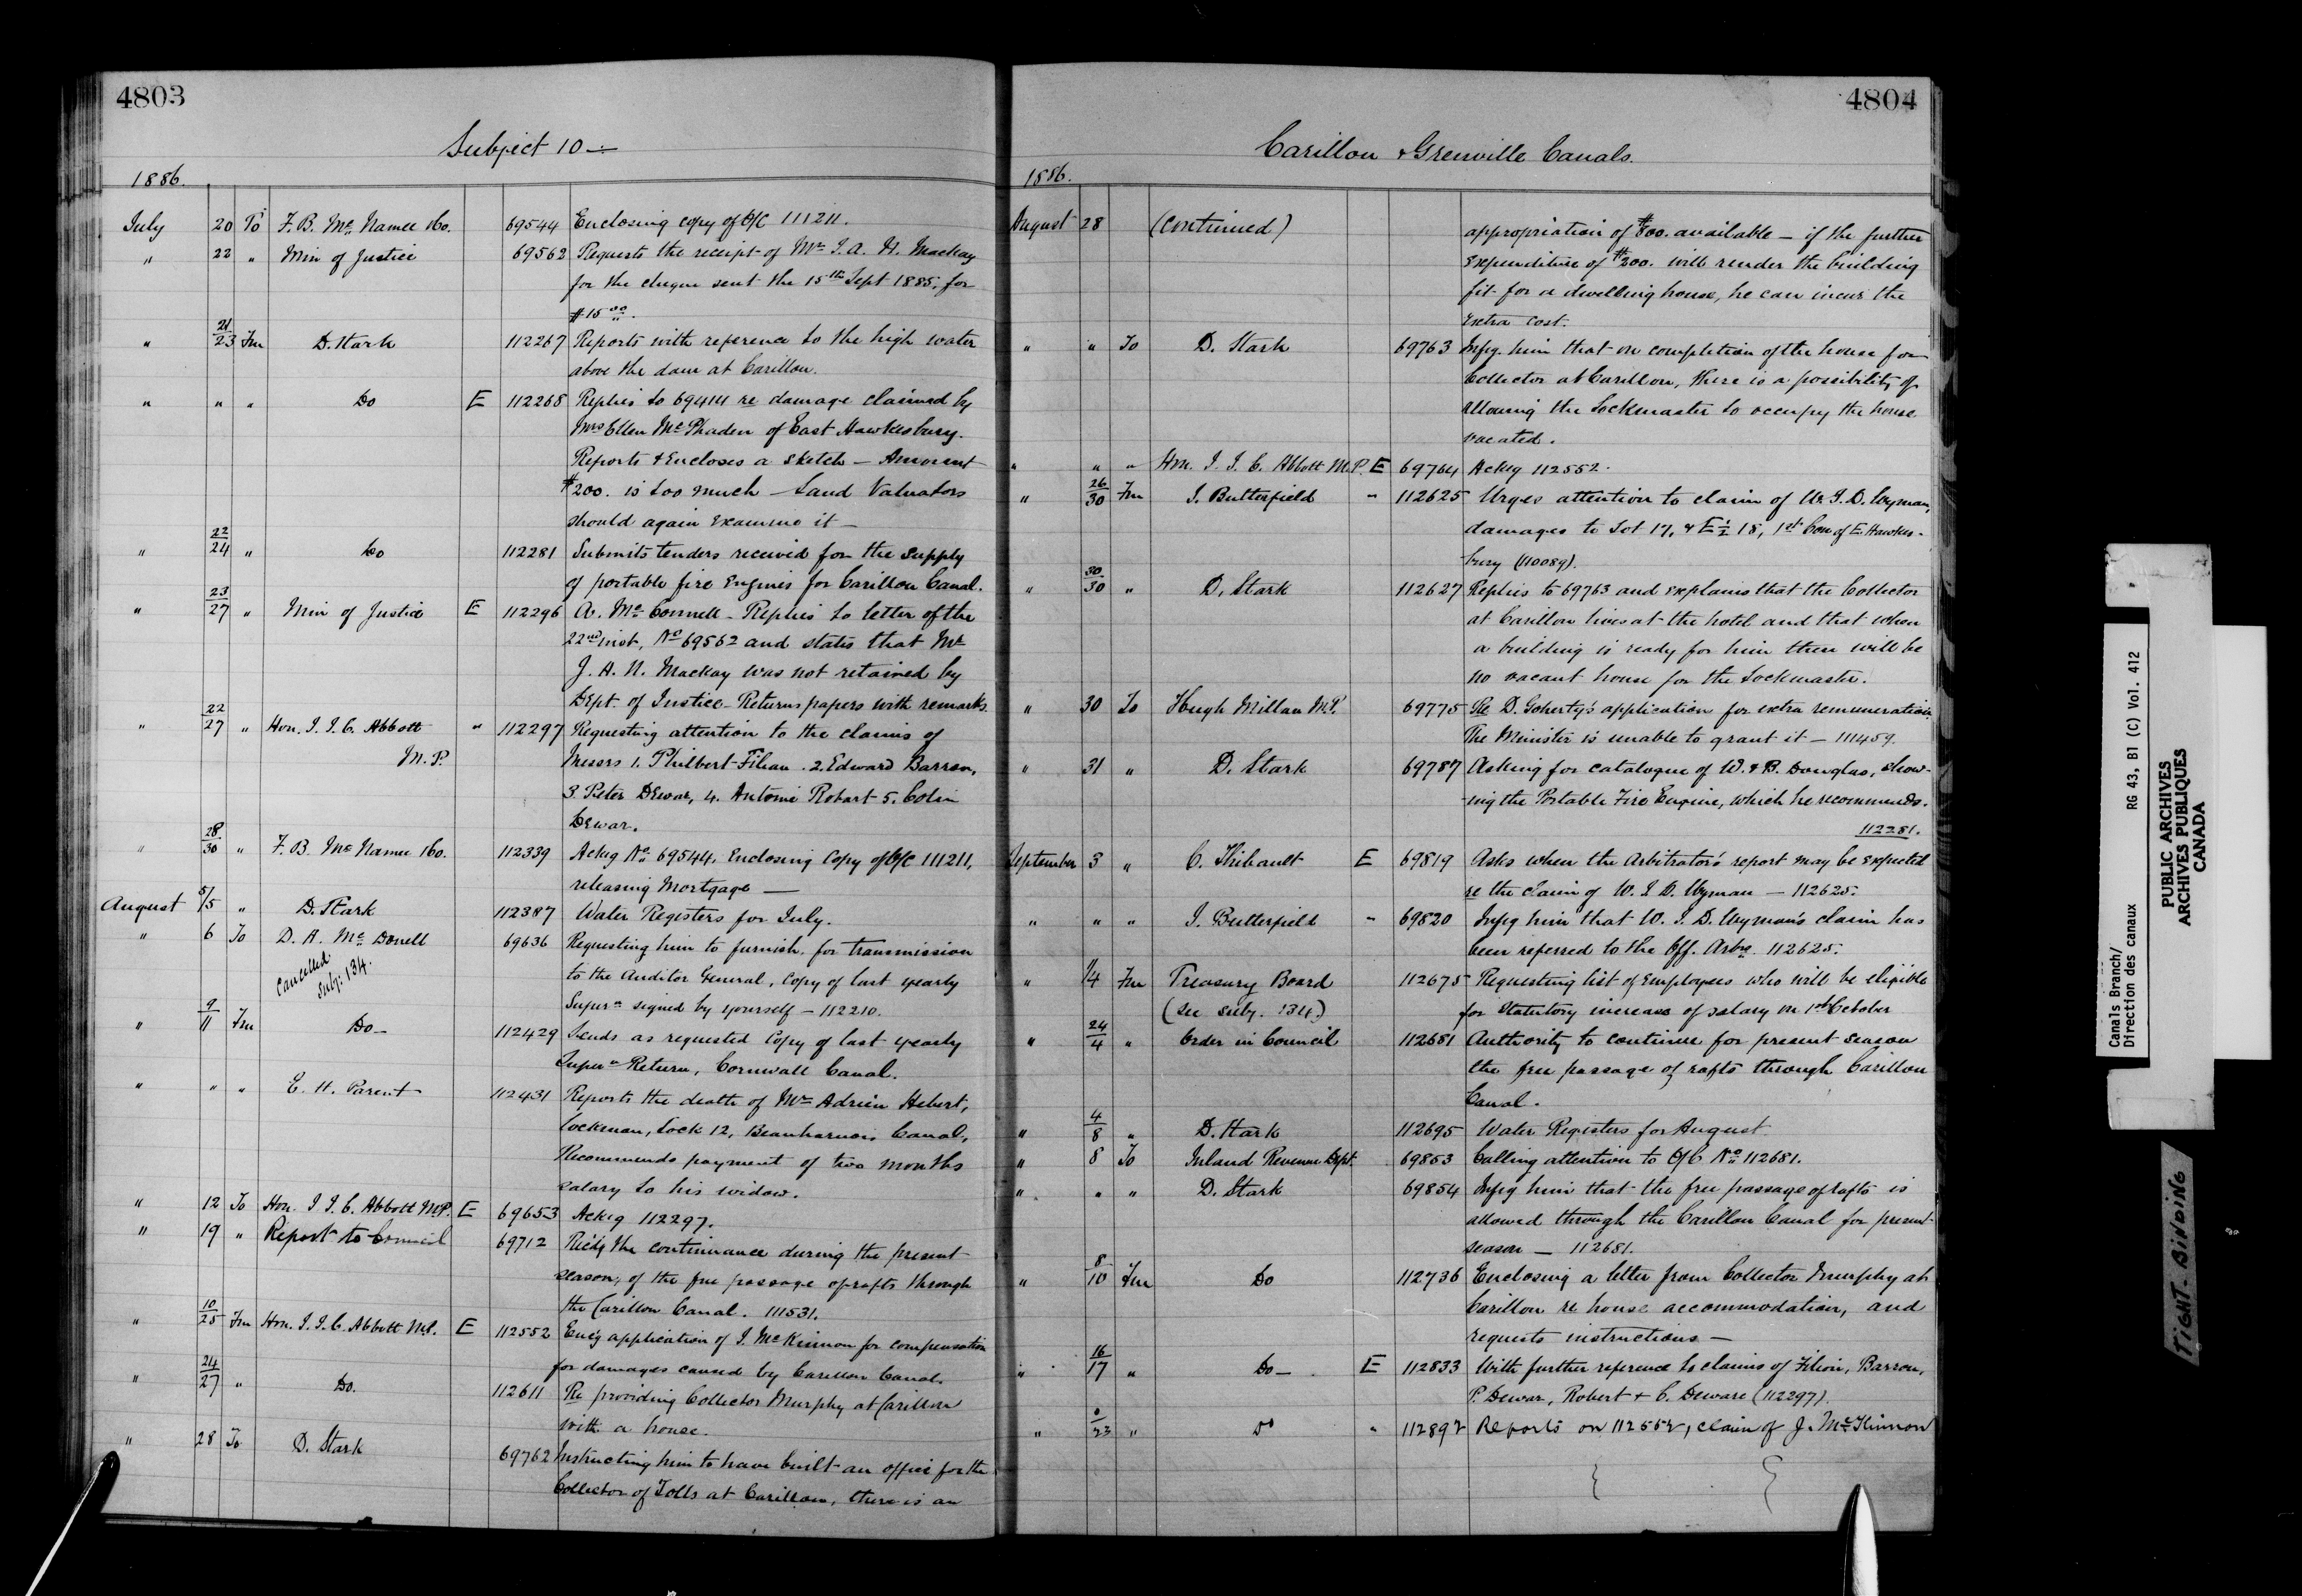 4803
Subject 10 —
1886.
July 20 To F. B. McNamee & Co. 69544 Enclosing copy of O/C 111211.
" 22 " Min of Justice 69562 Requests the receipt of Mr J. A. N. Mackay
for the cheque sent the 15th Sept 1885, for
$15.00.
" 21/23 Fm D. Stark 112267 Reports with reference to the high water
above the dam at Carillon.
" " " Do E 112268 Replies to 69414 re damage claimed by
Mrs Ellen McPhaden of East Hawkesbury.
Reports & Encloses a sketch — Amount
$200. is too much — Land Valuators
should again examine it —
" 22/24 " Do 112281 Submits tenders received for the supply
of portable fire Engines for Carillon Canal.
" 23/27 " Min of Justice E 112296 A. McConnell — Replies to letter of the
22nd inst, No 69562 and states that Mr
J. A. N. Mackay was not retained by
Dept. of Justice — Returns papers with remarks.
" 22/27 " Hon. J. J. C. Abbott " 112297 Requesting attention to the claims of
M.P. Messrs 1. Philbert Filion. 2. Edward Barron,
3. Peter Dewar, 4. Antoine Robart 5. Colin
Dewar.
" 28/30 " F. B. McNamee & Co. 112339 Ackg No 69544, Enclosing Copy of O/C 111211,
releasing Mortgage —
August 5/5 " D. Stark 112387 Water Registers for July.
" 6 To D. A. McDonell 69636 Requesting him to furnish, for transmission
Cancelled
Subj: 134.
to the Auditor General, copy of last yearly
Supern signed by yourself — 112210.
" 9/11 Fm Do — 112429 Sends as requested copy of last yearly
Supern Return, Cornwall Canal.
" " " E. H. Parent 112431 Reports the death of Mr Adrien Hebert,
lockman, Lock 12, Beauharnois Canal,
Recommends payment of two months
salary to his widow.
" 12 To Hon. J. J. C. Abbott M.P. E 69653 Ackg 112297.
" 19 " Report to Council 69712 Recdg the continuance during the present
season, of the free passage of rafts through
the Carillon Canal. 111531.
" 10/25 Fm Hon. J. J. C. Abbott M.P. E 112552 Encg application of J. McKinnon for compensation
for damages caused by Carillon Canal.
" 24/27 " Do. 112611 Re providing Collector Murphy at Carillon
with a house.
" 28 To D. Stark 69762 Instructing him to have built an office for the
Collector of Tolls at Carillon, there is an
4804
Carillon & Grenville Canals.
1886.
August 28 (continued) appropriation of $800. available — if the further
expenditure of $200. will render the building
fit for a dwelling house, he can incur the
extra cost.
" " To D. Stark 69763 Infg him that on completion of the house for
Collector at Carillon, there is a possibility of
allowing the Lockmaster to occupy the house
vacated.
" " " Hon. J. J. C. Abbott M.P. E 69764 Ackg 112552.
" 26/30 Fm J. Butterfield " 112625 Urges attention to claim of W. J. D. Wyman,
damages to Lot 17, & E ½ 18, 1st Con of E. Hawkes-
bury (110089).
" 30/30 " D. Stark 112627 Replies to 69763 and explains that the Collector
at Carillon lives at the hotel and that when
a building is ready for him there will be
no vacant house for the Lockmaster.
" 30 To Hugh Millan M.P. 69775 Re D. Goherty's application for extra remuneration
The Minister is unable to grant it — 111459.
" 31 " D. Stark 69787 Asking for catalogue of W. & B. Douglas, show-
-ing the Portable Fire Engine, which he recommends.
112281.
September 3 " C. Thibault E 69819 Asks when the Arbitrator's report may be expected
re the Claim of W. J. D. Wyman — 112625.
" " " J. Butterfield " 69820 Infg him that W. J. D. Wyman's claim has
been referred to the Off. Arbrs. 112625.
" 1/4 Fm Treasury Board 112675 Requesting list of Employees who will be eligible
(See subj. 134.) for Statutory increase of salary on 1st October
" 24/4 " Order in Council 112681 Authority to continue for present season
the free passage of rafts through Carillon
Canal.
" 4/8 " D. Stark 112695 Water Registers for August
" 8 To Inland Revenue Dept. 69853 Calling attention to O/C No 112681.
" " " D. Stark 69854 Infg him that the free passage of rafts is
allowed through the Carillon Canal for present
season — 112681.
" 8/10 Fm Do 112736 Enclosing a letter from Collector Murphy at
Carillon re house accommodation, and
requests instructions —
" 16/17 " Do — E 112833 With further reference to claims of Filion, Barron,
P. Dewar, Robert & C. Deware (112297).
" /23 " Do " 112892 Reports on 112552, claim of J. McKinnon
Canals Branch/
Direction des canaux RG 43, B1 (C) Vol. 412
PUBLIC ARCHIVES
ARCHIVES PUBLIQUES
CANADA
TIGHT BINDING